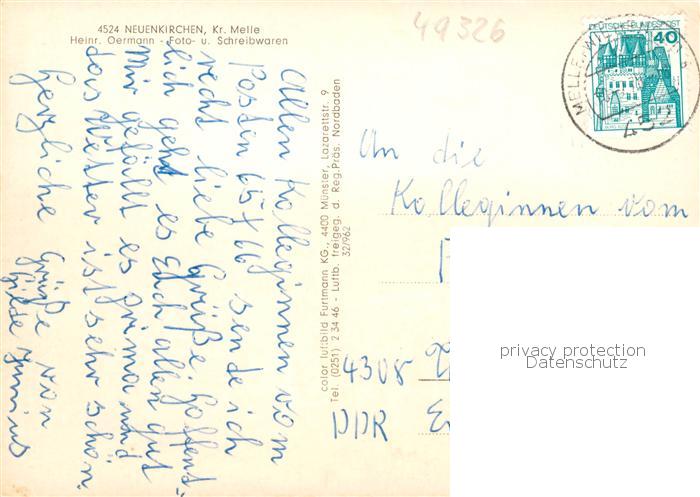 4524 NEUENKIRCHEN, Kr. Melle
Heinr. Oermann - Foto- u. Schreibwaren
49326
DEUTSCHE BUNDESPOST
40
MELLE
452
Allen Kolleginnen vom
Posten 65 + 66 sende ich
recht liebe Grüße. Hoffent-
lich geht es Euch allen gut
Mir gefällt es prima und
das Wetter ist sehr schön.
Herzliche Grüße von
color luftbild Furtmann KG., 4400 Münster, Lazarettstr. 9
Tel. (0251) 2 34 46 - Luftb. freigeg. d. Reg.Präs. Nordbaden
32/962
An die
Kolleginnen vom
4308
DDR
privacy protection
Datenschutz